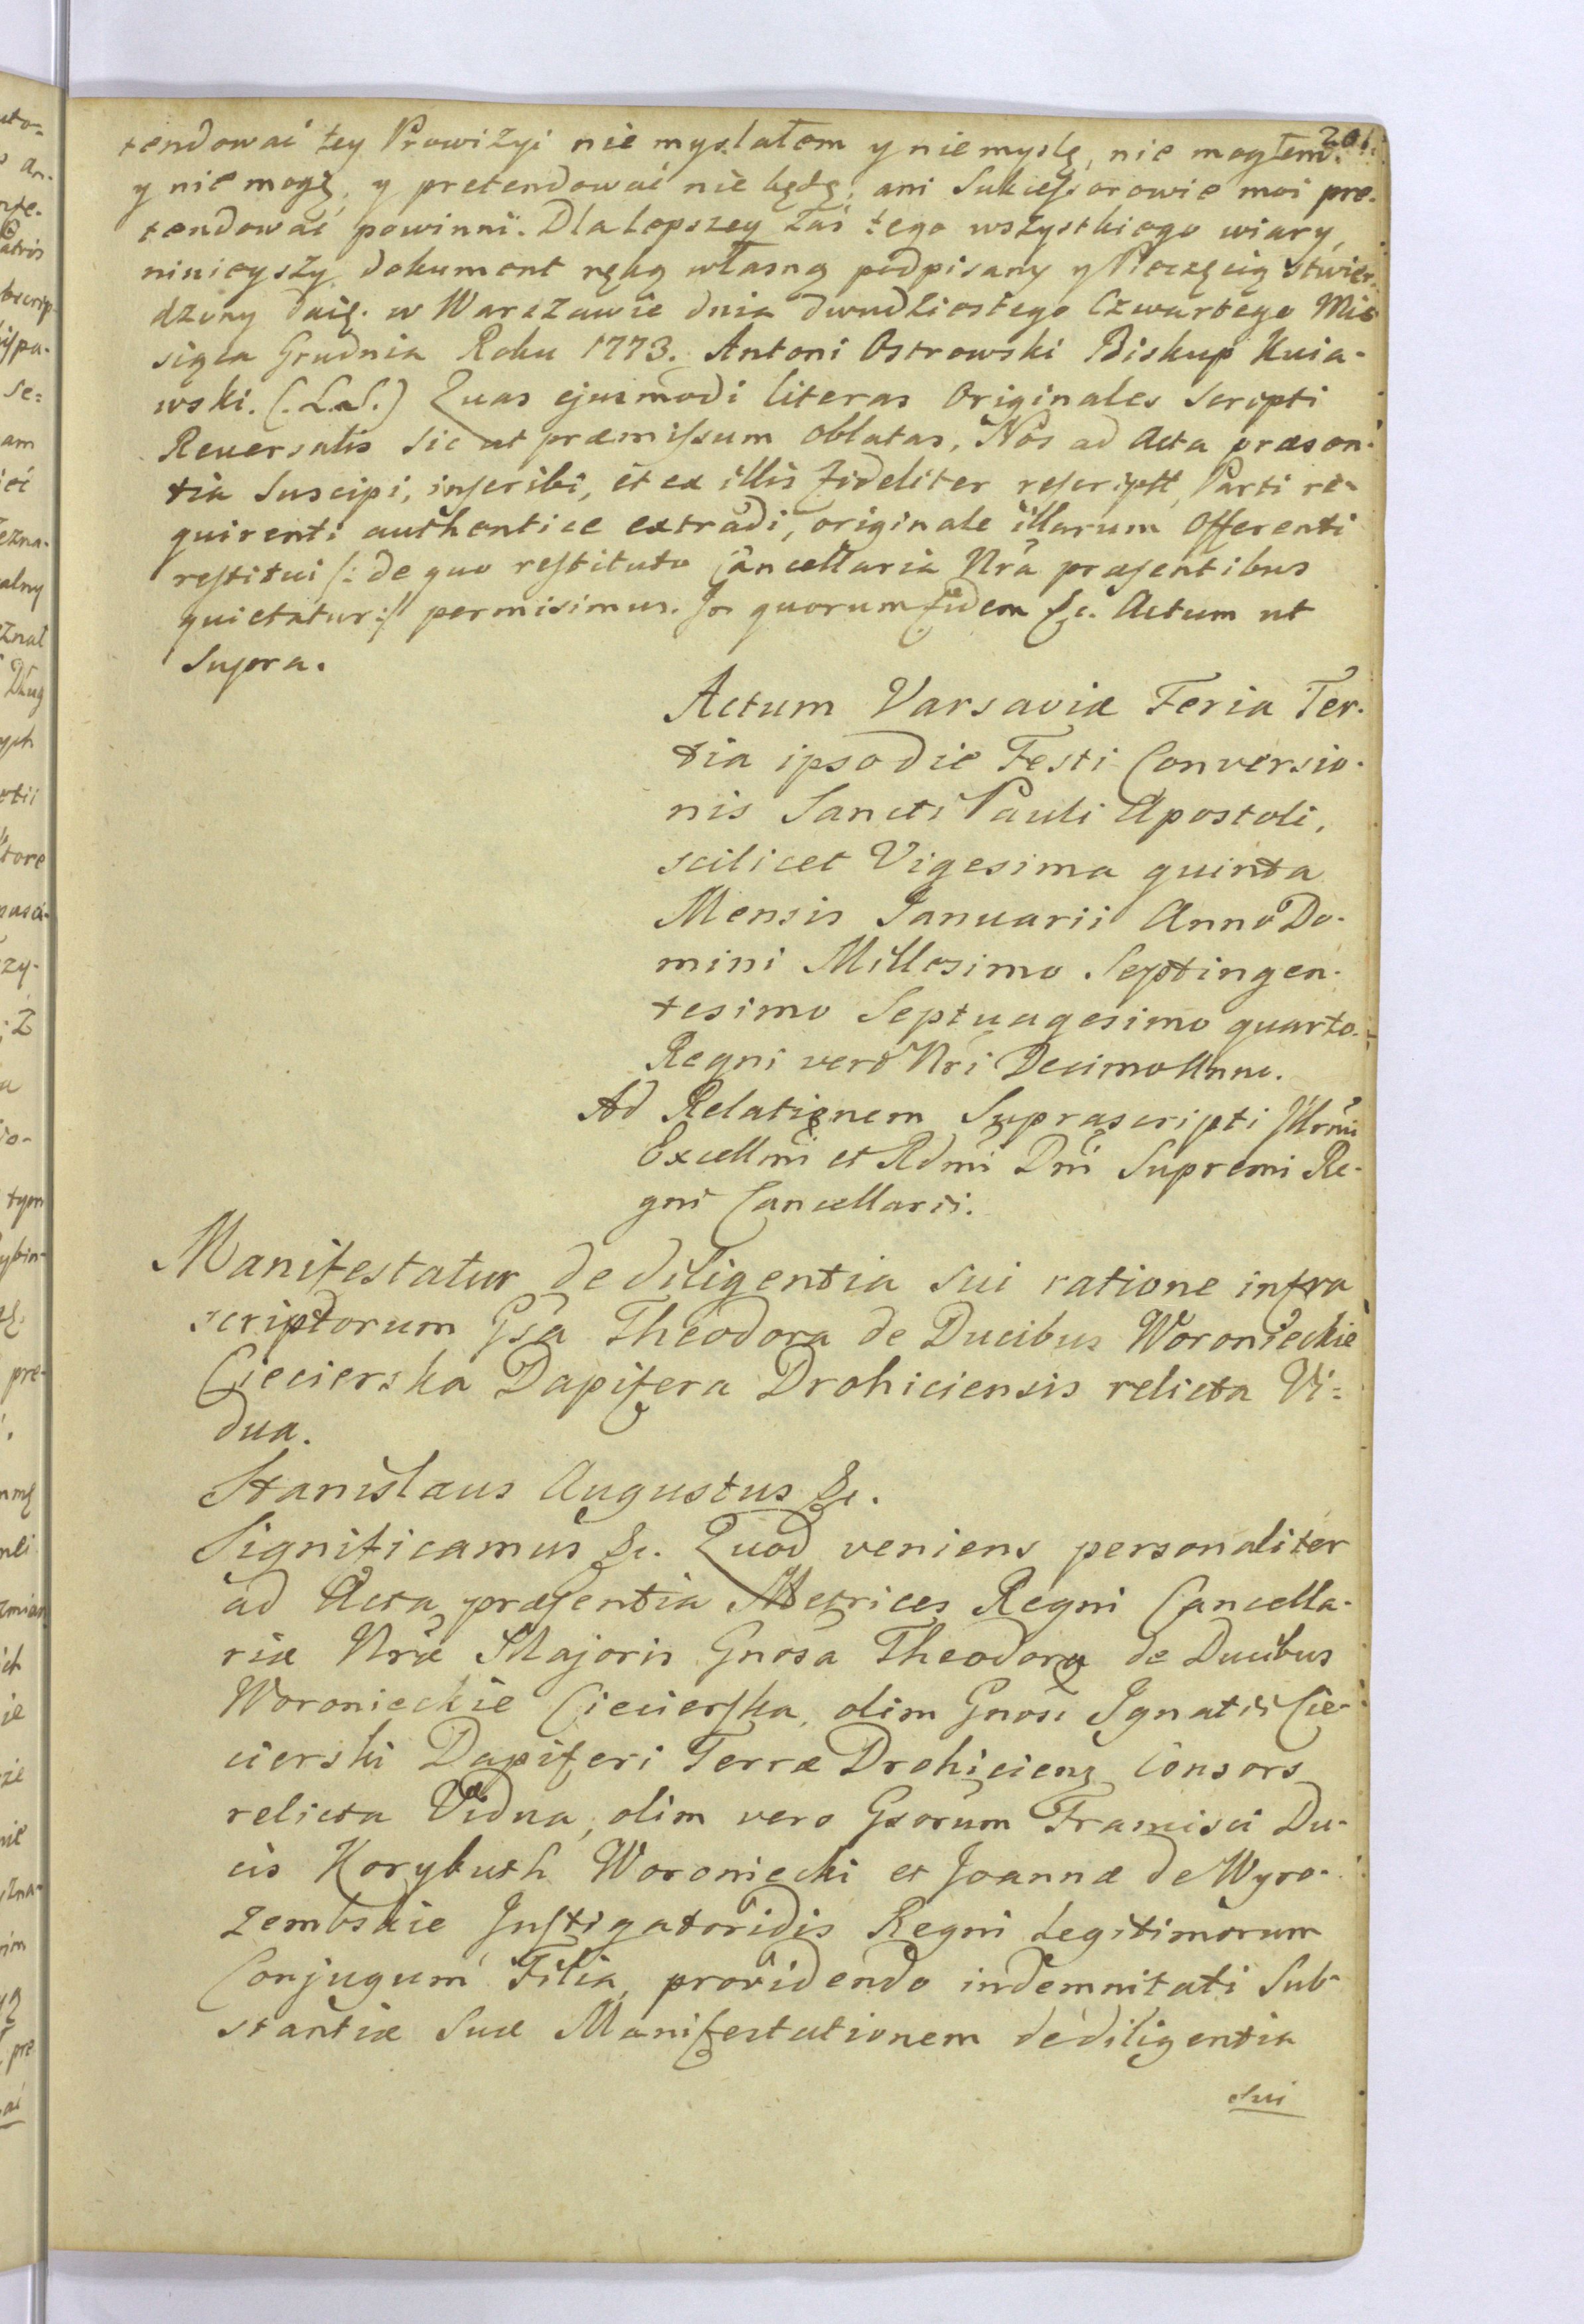 201.
tendować tey Prowizyi nie myslałem y nie myslę, nie mogłem
y nie mogę, y pretendować nie będę, ani Sukcessorowie moi pre-
tendować powinni. Dla lepszey zaś tego wszystkiego wiary,
ninieyszy dokument ręką własną podpisany y Pieczęcią stwier-
dzony daię. w Warszawie dnia dwudziestego Czwartego Mie
siąca Grudnia Roku 1773. Antoni Ostrowski Biskup Kuia-
wski. (.L.S.) Quas ejusmodi literas Originales Scripti
Reversalis sic ut præmissum oblatas, Nos ad Acta præsen-
tia Suscipi, inscribi, et ex illis fideliter rescriptt Parti re-
quirenti authentice extradi, originale illarum Offerenti
restitui /: de quo restituto Cancellaria Nra præsentibus
quietatur :/ permisimus. In quorum fidem &c. Actum ut
Supra.
Actum Varsaviæ Feria Ter-
tia ipso die Festi Conversio-
nis Sancti Pauli Apostoli,
scilicet Vigesima quinta
Mensis Januarii Anno Do-
mini Millesimo Septingen-
tesimo Septuagesimo quarto.
Regni vero Nri Decimo Anno.
Ad Relationem Suprascripti Illrmi
Excellmi et Rdmi Dni Supremi Re-
gni Cancellarii.
Manifestatur de diligentia sui ratione infra
scriptorum Gsa Theodora de Ducibus Woronieckie
Ciecierska Dapifera Drohiciensis relicta Vi=
dua.
Stanislaus Augustus &c.
Significamus &c. Quod veniens personaliter
ad Acta præsentia Metrices Regni Cancella-
riæ Nræ Majoris Gnosa Theodora de Ducibus
Woronieckie Ciecierska, olim Gnosi Ignatii Cie-
cierski Dapiferi Terræ Drohiciens Consors
relicta Vidua, olim vero Gsorum Francisci Du-
cis Korybuth Woroniecki et Joannæ de Wyro-
zembskie Instigatoridis Regni Legitimorum
Conjugum Filia, providendo indemnitati Sub-
stantiæ Suæ Manifestationem de diligentia
Sui